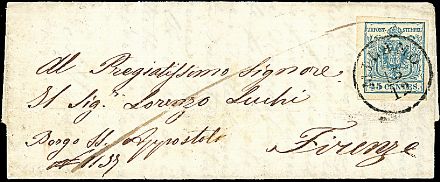 KKPOST-STEMPEL
MILANO
5
12
45 CENTES.
Al Pregiatissimo Signore
Il Sig.r Lorenzo Luchi
Borgo SS. Appostoli
Firenze